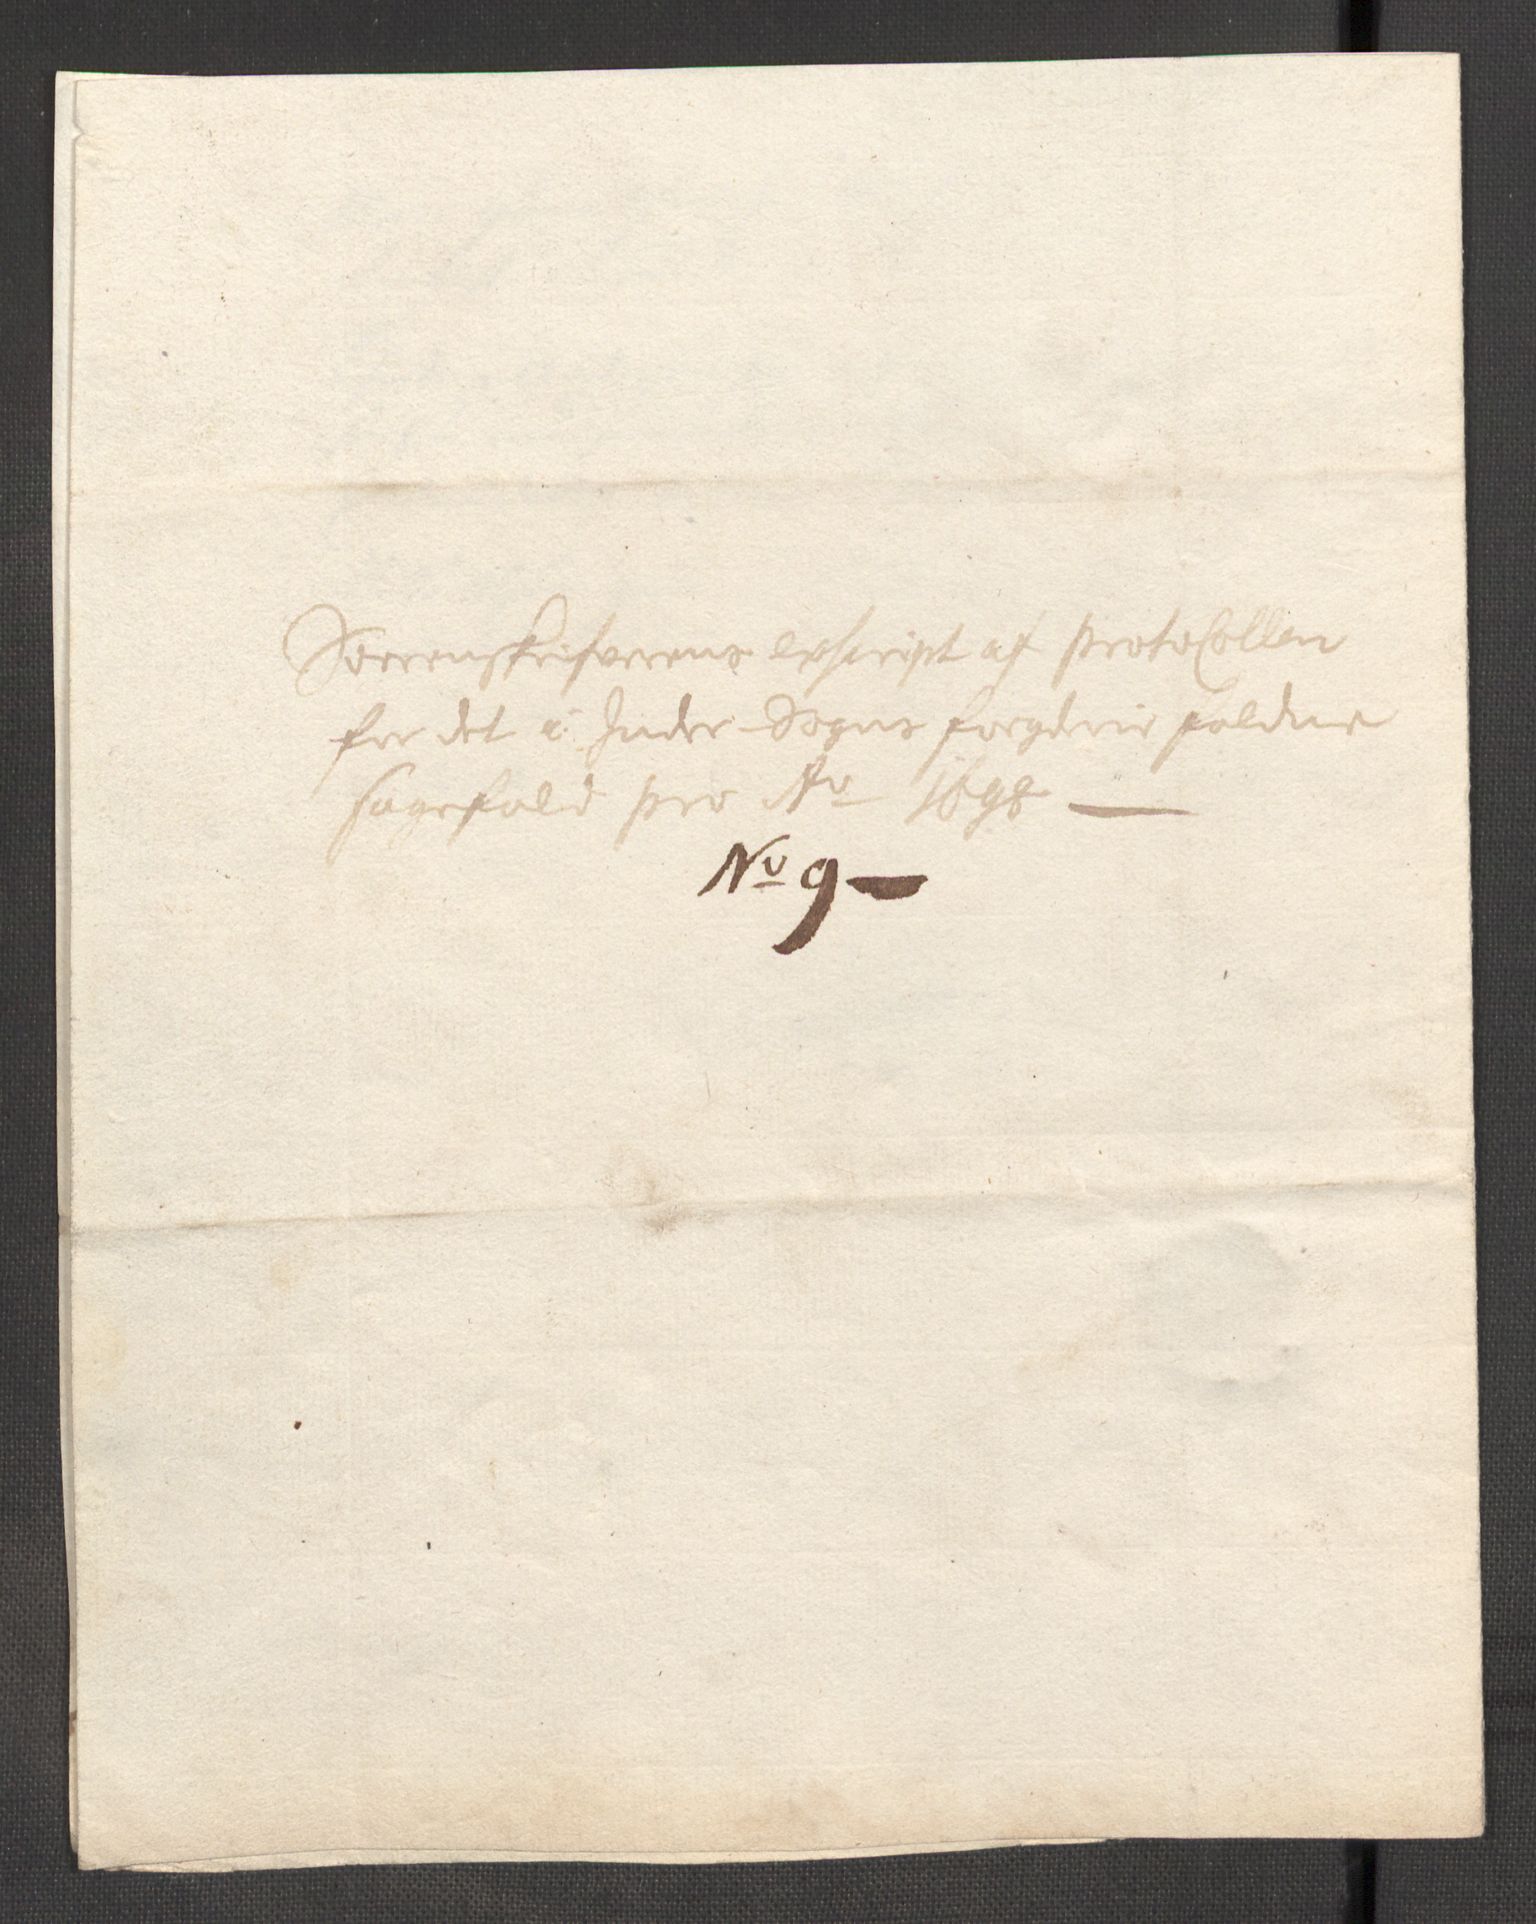 Sorrenskrifverens exscript af Protocollen
for det i Inder Sogns fogderie faldne
sagefald pro Ao 1698
No 9